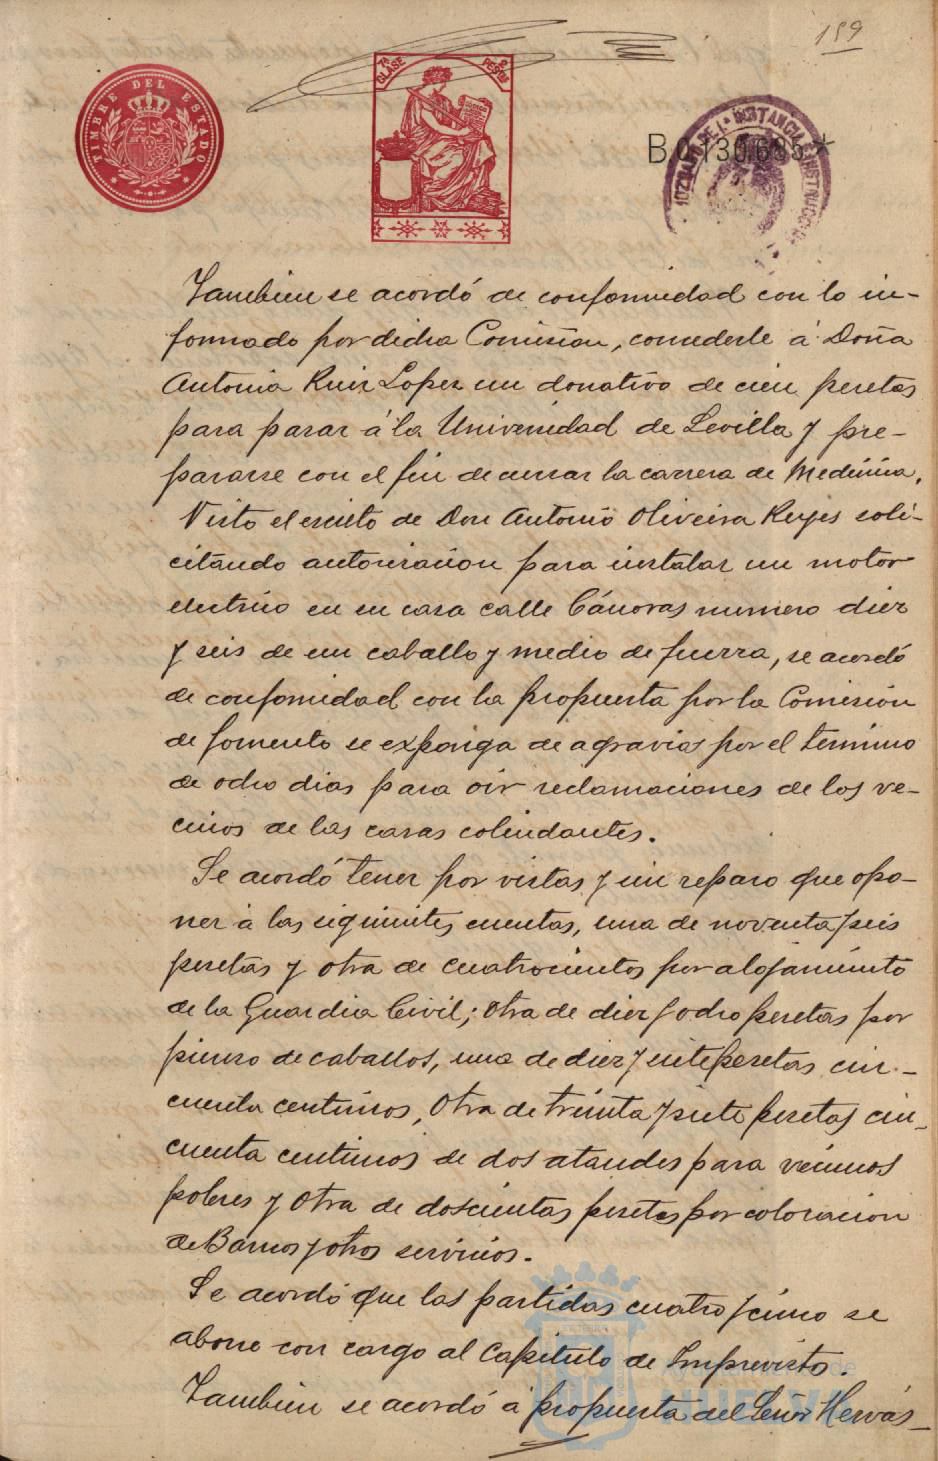 159
TIMBRE DEL ESTADO
7ª CLASE
2 PESETAS
B0.130.685*
JUZGADO DE 1ª INSTANCIA E INSTRUCCION
Tambien se acordó de conformidad con lo in-
formado por dicha Comisión, concederle á Doña
Antonia Ruiz Lopez un donativo de cien pesetas
para pasar á la Universidad de Sevilla y pre-
pararse con el fin de cursar la carrera de Medicina.
Visto el escrito de Don Antonio Oliveira Reyes soli-
citando autorizacion para instalar un motor
electrico en su casa calle Cánovas numero diez
y seis de un caballo y medio de fuerza, se acordó
de conformidad con la propuesta por la Comisión
de fomento se exponga de agravios por el termino
de ocho dias para oir reclamaciones de los ve-
cinos de las casas colindantes.
Se acordó tener por vistas y sin reparo que opo-
ner á las siguientes cuentas, una de noventa y seis
pesetas y otra de cuatrocientos por alojamiento
de la Guardia Civil; otra de diez y ocho pesetas por
pienso de caballos, una de diez y siete pesetas cin-
cuenta centimos, otra de treinta y siete pesetas cin-
cuenta centimos de dos ataudes para vecinos
pobres y otra de doscientas pesetas por colocacion
de Bancos y otros servicios.
Se acordó que las partidas cuatro y cinco se
abone con cargo al Capitulo de Imprevisto.
Tambien se acordó á propuesta del Señor Hervás
Ayuntamiento de
HUELVA